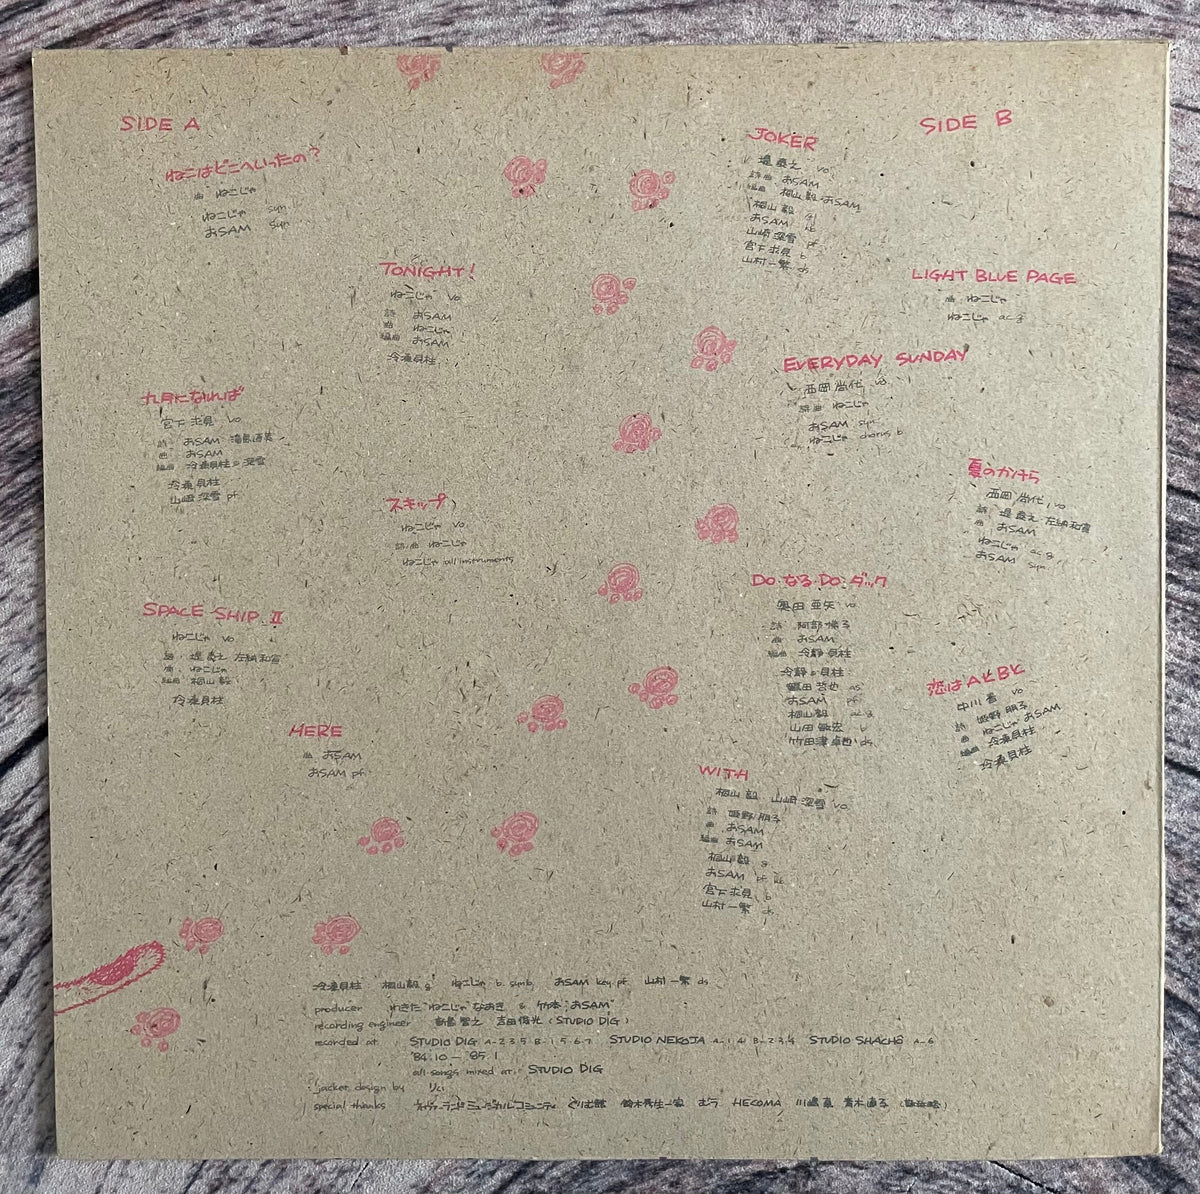 SIDE A
ねこはどこへいったの?
曲 ねこじゃ
ねこじゃ syn
おSAM syn
TONIGHT!
ねこじゃ vo
詩 おSAM
曲 ねこじゃ
編曲 おSAM
冷凍貝柱
九月になれば
宮下 求見 vo
詩 おSAM
曲 おSAM
編曲 冷凍貝柱 深雪
冷凍貝柱
山崎 深雪 pf
スキップ
ねこじゃ vo
詩・曲 ねこじゃ
ねこじゃ all instruments
SPACE SHIP II
ねこじゃ vo
詩 堤 泰之 左納 和宣
曲 ねこじゃ
編曲 桐山 毅
冷凍貝柱
HERE
曲 おSAM
おSAM pf
SIDE B
JOKER
堤 泰之 vo
詩曲 おSAM
編曲 桐山 毅・おSAM
桐山 毅 g
おSAM kb
山崎 深雪 pf
宮下 求見 b
山村 一繁 ds
LIGHT BLUE PAGE
曲 ねこじゃ
ねこじゃ ac g
EVERYDAY SUNDAY
西岡 尚代 vo
詩曲 ねこじゃ
おSAM syn
ねこじゃ chorus b
夏のかけら
西岡 尚代 vo
詩 堤 泰之 左納 和宣
曲 おSAM
ねこじゃ ac g
おSAM syn
DO・なる・DO・ダック
奥田 亜矢 vo
詩 阿部
曲 おSAM
編曲 冷静 貝柱
冷静 貝柱
田 哲也 as
おSAM pf
桐山 毅 ac g
山田 敏宏 b
竹田津 卓也 ds
恋はAとBと
中川 vo
詩 姫野 朋子
曲 ねこじゃ おSAM
編曲 冷凍貝柱
冷凍貝柱
WITH
桐山 毅 山崎 深雪 vo
詩 姫野 朋子
曲 おSAM
編曲 おSAM
桐山 毅 g
おSAM pf kb
宮下 求見 b
山村 一繁 ds
冷凍貝柱 桐山毅 g ねこじゃ b. synth おSAM key. pf 山村 一繁 ds
producer わきた"ねこじゃ"なおき & 竹本"おSAM"
recording engineer 智之 吉田 俊光 (STUDIO DIG)
recorded at STUDIO DIG A-2 3 5 B-1 5 6 7 STUDIO NEKOJA A-1 4 B-2 3 4 STUDIO SHACHO A-6
'84.10 — '85.1
all songs mixed at STUDIO DIG
jacket design by りに
special thanks ネヴァーランドミュージカルコミュニティ ぐりむ館 鈴木秀生一家 むう HECOMA 川嶋 直 青木 直子